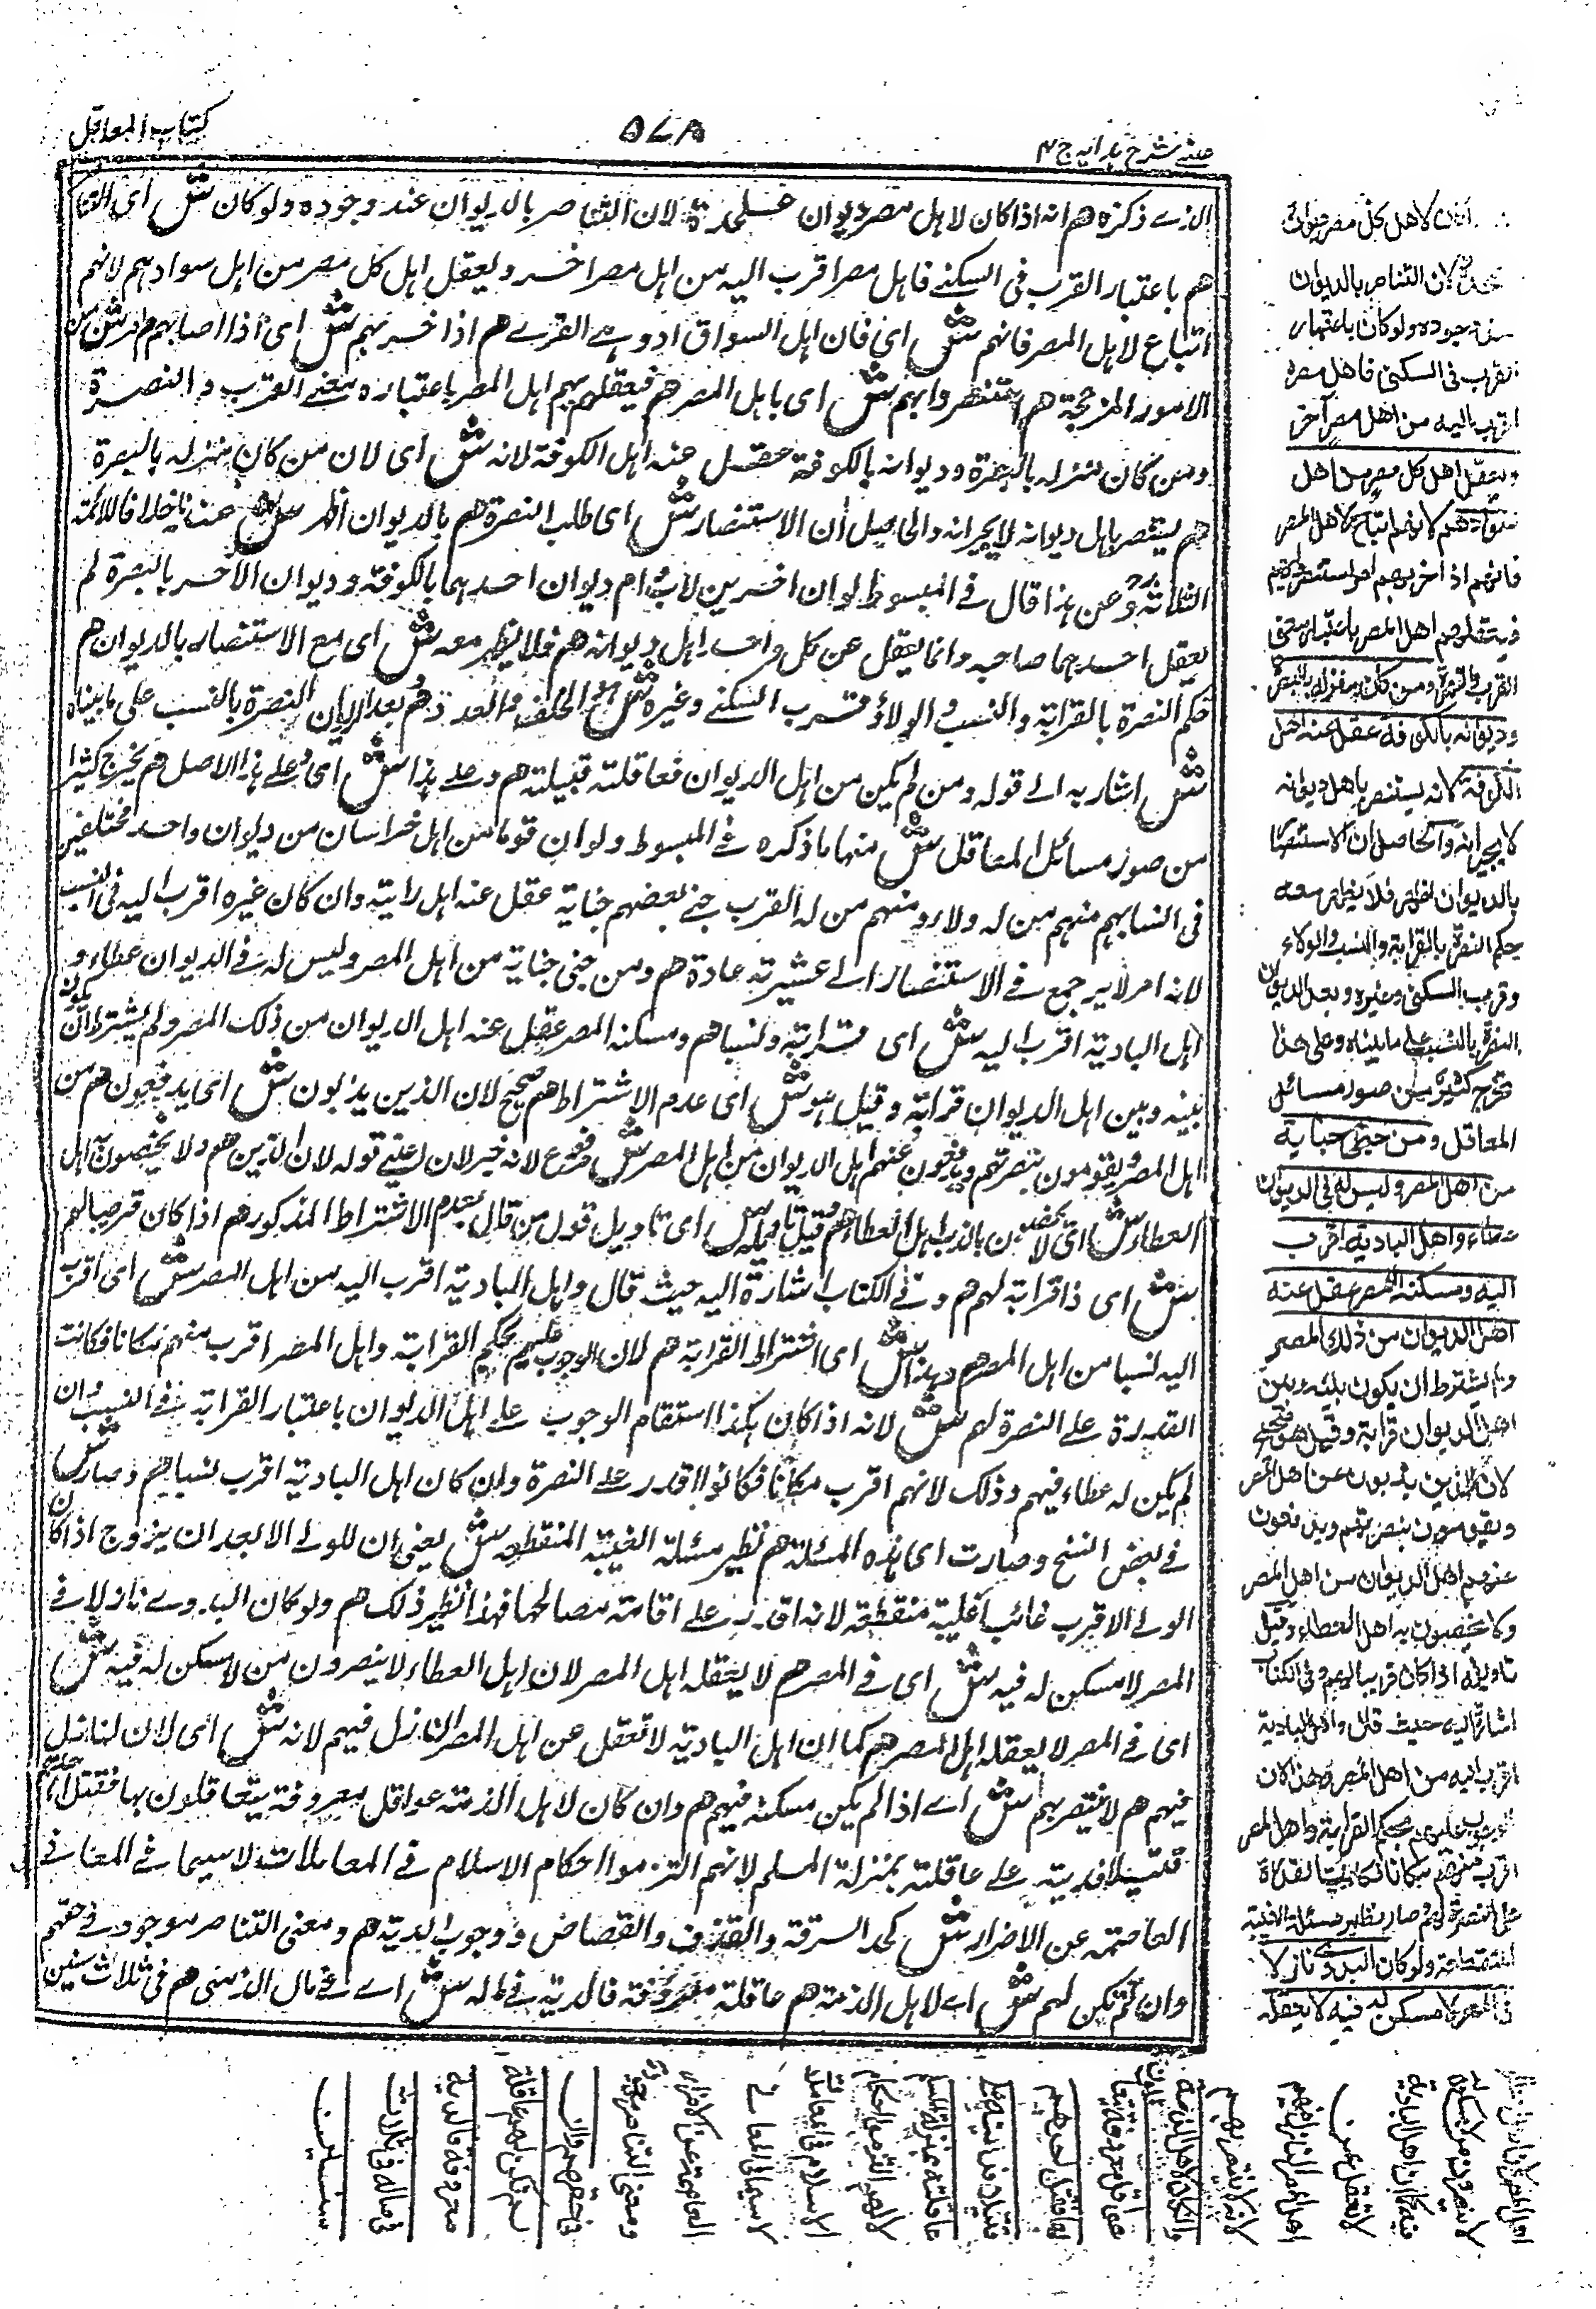 كتاب المعاقل
٥٧٨
عینے شرح ہدایہ ج ۴
الذے ذکرہ هم انه اذا کان لاہل مصر دیوان علیحدة لان التناصر بالدیوان عند وجوده ولو کان ش ای التناصر
هم باعتبار القرب فی السکنے فاہل مصر اقرب الیه من اہل مصر اخر ویعقل اہل کل مصر من اہل سوادہم لانہم
اتباع لاہل المصر فانہم ش ای فان اہل السواد وہے القرے هم اذا حزبہم ش ای اذا اصابہم امر ش من
الامور المزعجة هم استنصروا بہم ش ای باہل المصر هم فیعقلہم اہل المصر باعتبار معنے القرب والنصرة
ومن کان منزله بالبصرة ودیوانه بالکوفة عقل عنه اہل الکوفة لانه ش ای لان من کان منزله بالبصرة
هم یستنصر باہل دیوانه لا بجیرانه والحاصل ان الاستنصار ش ای طلب النصرة هم بالدیوان اظہر ش عندنا خلافا للائمة
الثلاثة وعن ہذا قال فے المبسوط لو ان اخوین لاب وام دیوان احدہما بالکوفة ودیوان الآخر بالبصرة لم
یعقل احدہما صاحبه وانما یعقل عن کل واحد اہل دیوانه هم فلا یظہر معه ش ای مع الاستنصار بالدیوان هم
حکم النصرة بالقرابة والنسب والولاء وقرب السکنے وغیره ش الحلف والعد هم وبعد الدیوان النصرة بالنسب علی ما بیناه
ش اشار به الے قوله ومن لم یکن من اہل الدیوان فعاقلته قبیلته هم وعلے ہذا ش ای وعلے ہذا الاصل هم یخرج کثیر
من صور مسائل المعاقل ش منہا ما ذکره فے المبسوط ولو ان قوما من اہل خراسان من دیوان واحد مختلفین
فی انسابہم منہم من له ولاء ومنہم من له القرب جنے بعضہم جنایة عقل عنه اہل رایته وان کان غیره اقرب الیه فی النسب
لانه امر لا یرجع فے الاستنصار الے عشیرته عادة هم ومن جنی جنایة من اہل المصر ولیس له فے الدیوان عطاء و
اہل البادیة اقرب الیه ش ای قرابة ونسبا هم ومسکنه المصر عقل عنه اہل الدیوان من ذلک المصر ولم یشترط ان یکون
بینه وبین اہل الدیوان قرابة وقیل ہو ش ای عدم الاشتراط هم صحیح لان الذین یذبون ش ای یدفعون هم من
اہل المصر ویقومون بنصرتہم ویدفعون عنہم اہل الدیوان من اہل المصر ش مرفوع لانه خبر لان یعنے قوله لان الذین هم ولا یختصون به اہل
العطاء ش ای لا یختصون بالذب اہل العطاء هم وقیل تاویله ش ای تاویل قول من قال بعدم الاشتراط المذکور هم اذا کان قریبا لہم
ش ای ذا قرابة لہم هم وفے الکتاب اشارة الیه حیث قال واہل البادیة اقرب الیه من اہل المصر ش ای اقرب
الیه نسبا من اہل المصر هم وہذا ش ای اشتراط القرابة هم لان الوجوب علیہم بحکم القرابة واہل المصر اقرب منہم مکانا فکانت
القدرة علے النصرة لہم ش لانه اذا کان ہکذا استقام الوجوب علے اہل الدیوان باعتبار القرابة فے النسب وان
لم یکن له عطاء فیہم وذلک لانہم اقرب مکانا فکانوا اقدر علے النصرة وان کان اہل البادیة اقرب نسبا هم وصار ش
فے بعض النسخ وصارت ای ہذه المسئلة هم نظیر مسئلة الغیبة المنقطعة ش یعنی ان للولے الابعد ان یزوج اذا کان
الولے الاقرب غائبا غیبة منقطعة لانه اقدر علے اقامة مصالحہا فہذا نظیر ذلک هم ولو کان البدوے نازلا فے
المصر لا مسکن له فیه ش ای فے المصر هم لا یعقله اہل المصر لان اہل العطاء لا ینصرون من لا مسکن له فیه ش
ای فے المصر لا یعقله اہل المصر هم کما ان اہل البادیة لا تعقل عن اہل المصر النازل فیہم لانه ش ای لان النازل
فیہم هم لا یستنصر بہم ش اے اذا لم یکن مسکنه فیہم هم وان کان لاہل الذمة عواقل معروفة یتعاقلون بہا فقتل احدہم
قتیلا فدیته علے عاقلته بمنزلة المسلم لانہم التزموا احکام الاسلام فے المعاملات لا سیما فے المعانی
العاصمة عن الاضرار ش کحد السرقة والقذف والقصاص ووجوب الدیة هم ومعنی التناصر موجود فے حقہم
وان لم تکن لہم ش اے لاہل الذمة هم عاقلة معروفة فالدیة فے ماله ش اے فے مال الذمی هم فی ثلاث سنین
لاهل کل مصر دیوان
لان التناصر بالدیوان
عند وجوده ولو کان باعتبار
القرب فی السکنی فاهل مصره
اقرب الیه من اهل مصر آخر
ویعقل اهل کل مصر من اهل
سوادهم لانهم اتباع لاهل المصر
فانهم اذا حزبهم امر استنصروا بهم
فیعقلهم اهل المصر باعتبار معنی
القرب والنصرة ومن کان منزله بالبصرة
ودیوانه بالکوفة عقل عنه اهل
الکوفة لانه یستنصر باهل دیوانه
لا بجیرانه والحاصل ان الاستنصار
بالدیوان اظهر فلا یظهر معه
حکم النصرة بالقرابة والنسب والولاء
وقرب السکنی وغیره وبعد الدیوان
النصرة بالنسب علی ما بیناه وعلی هذا
یخرج کثیر من صور مسائل
المعاقل ومن جنی جنایة
من اهل المصر ولیس له فی الدیوان
عطاء واهل البادیة اقرب
الیه ومسکنه المصر عقل عنه
اهل الدیوان من ذلک المصر
ولم یشترط ان یکون بینه وبین
اهل الدیوان قرابة وقیل هو صحیح
لان الذین یذبون عن اهل المصر
ویقومون بنصرتهم ویدفعون
عنهم اهل الدیوان من اهل المصر
ولا یختصون به اهل العطاء وقیل
تاویله اذا کان قریبا لهم وفی الکتاب
اشارة الیه حیث قال واهل البادیة
اقرب الیه من اهل المصر وهذا لان
الوجوب علیهم بحکم القرابة واهل المصر
اقرب منهم مکانا فکانت القدرة
علی النصرة لهم وصار نظیر مسئلة الغیبة
المنقطعة ولو کان البدوی نازلا
فی المصر لا مسکن له فیه لا یعقله
اهل المصر لان
لا ینصرون من لا مسکن له
فیه کما ان اهل البادیة
لا تعقل عن
اهل المصر النازل فیهم
لانه لا یستنصر بهم
وان کان لاهل الذمة
عواقل معروفة یتعاقلون
بها فقتل احدهم
قتیلا فدیته علی
عاقلته بمنزلة المسلم
لانهم التزموا احکام
الاسلام فی المعاملات
لا سیما فی المعانی
العاصمة عن الاضرار
ومعنی التناصر موجود
فی حقهم وان
لم تکن لهم عاقلة
معروفة فالدیة
فی ماله فی ثلاث
سنین